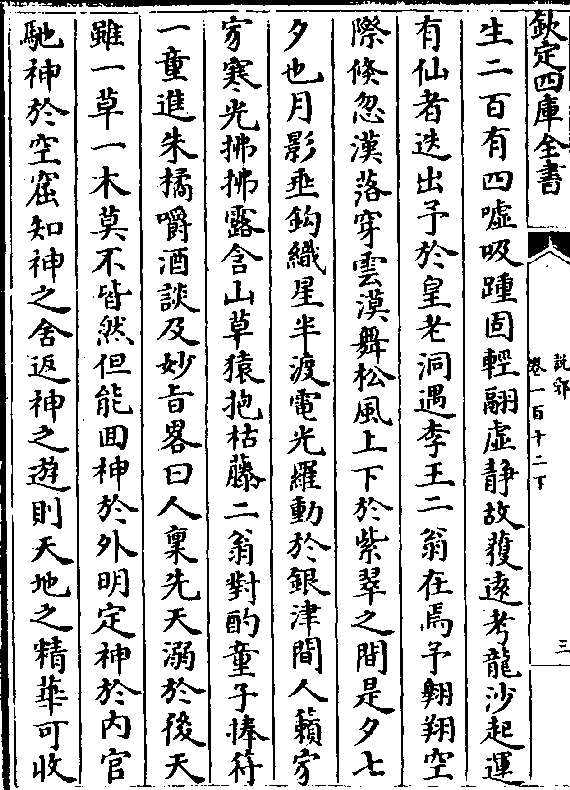 欽定四庫全書
說郛
卷一百十二下
三
生二百有四噓吸踵固輕翮虛靜故獲遠考龍沙起運
有仙者迭出予於皇老洞遇李王二翁在焉予翺翔空
際倐忽漢落穿雲漠舞松風上下於紫翠之間是夕七
夕也月影垂鈎織星半渡電光羅動於銀津間人籟寂
寂寒光拂拂露含山草猿抱枯藤二翁對酌童子捧符
一童進朱橘嚼酒談及妙旨畧曰人稟先天溺於後天
雖一草一木莫不皆然但能回神於外明定神於内官
馳神於空窟知神之舍返神之遊則天地之精華可收